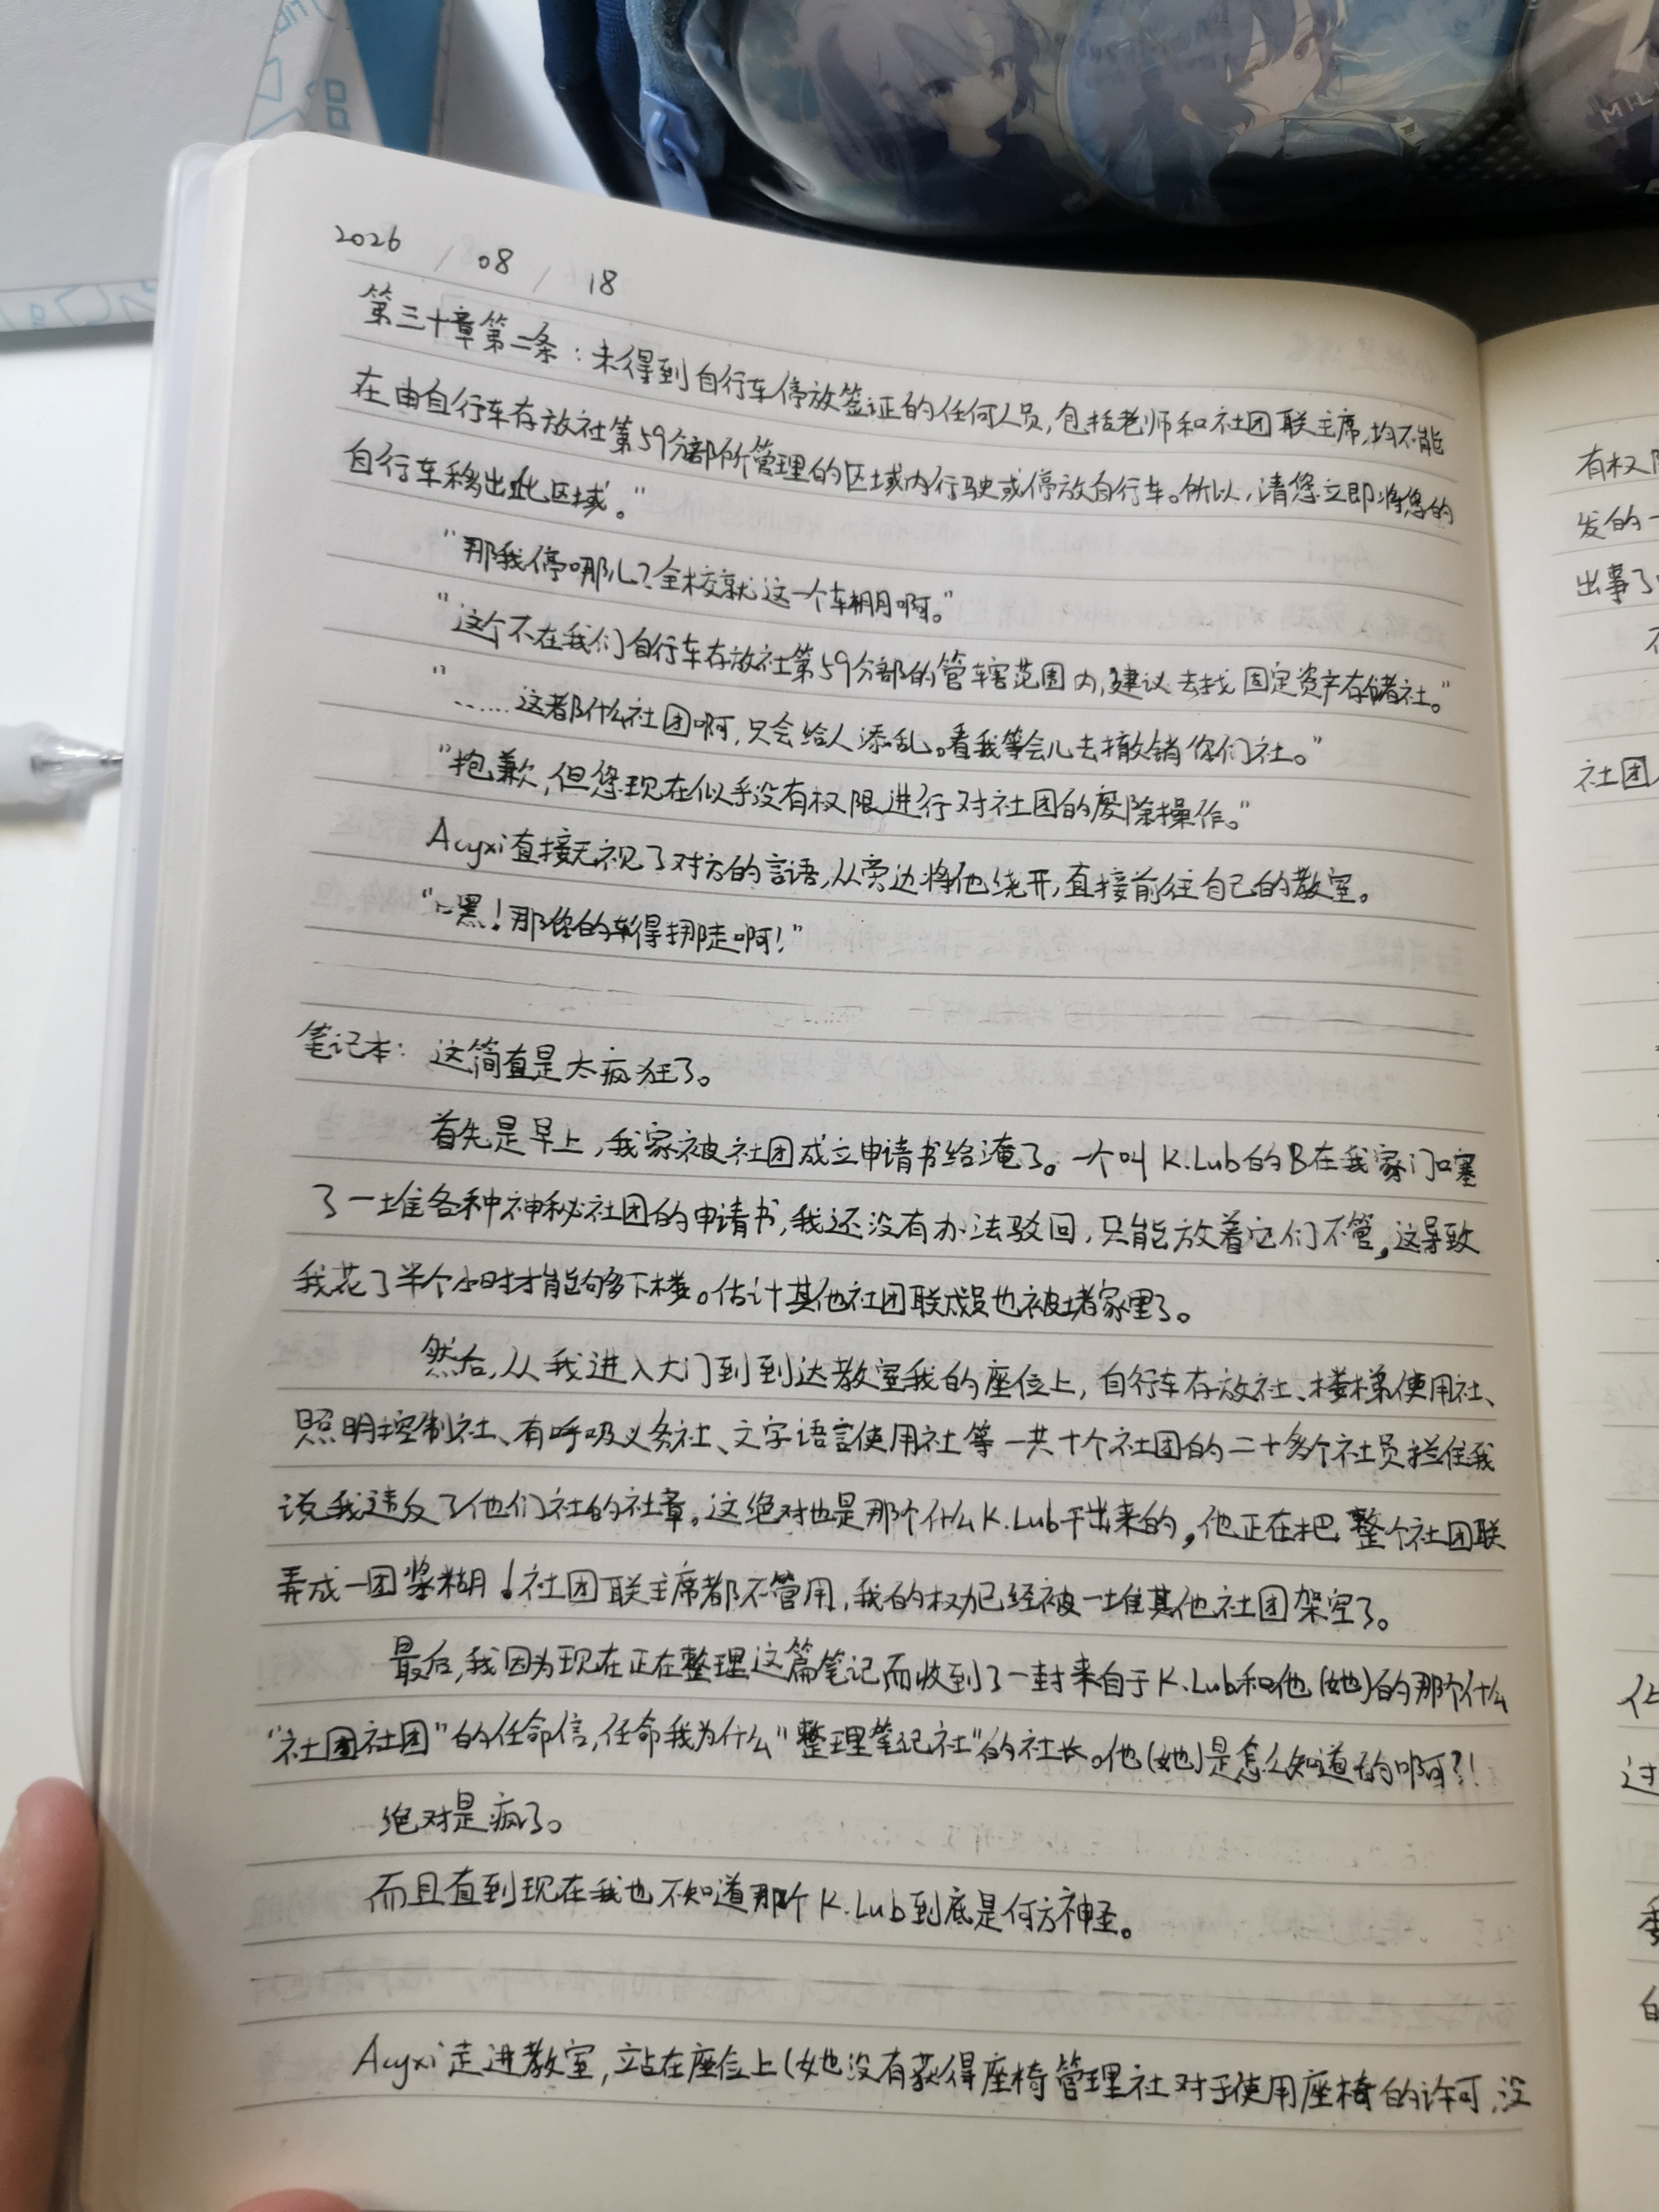 2026 / 08 / 18
第三十章第二条：未得到自行车停放签证的任何人员，包括老师和社团联主席，均不能
在由自行车存放社第59分部所管理的区域内行驶或停放自行车。所以，请您立即将您的
自行车移出此区域。”
“那我停哪儿？全校就这一个车棚啊。”
“这个不在我们自行车存放社第59分部的管辖范围内，建议去找固定资产存储社。”
“……这都什么社团啊，只会给人添乱。看我等会儿去撤销你们社。”
“抱歉，但您现在似乎没有权限进行对社团的废除操作。”
Acyxi直接无视了对方的言语，从旁边将他绕开，直接前往自己的教室。
“嘿！那你的车得挪走啊！”
笔记本：这简直是太疯狂了。
首先是早上，我家被社团成立申请书给淹了。一个叫K.Lub的B在我家门口塞
了一堆各种神秘社团的申请书，我还没有办法驳回，只能放着它们不管，这导致
我花了半个小时才能够下楼。估计其他社团联成员也被堵家里了。
然后，从我进入大门到到达教室我的座位上，自行车存放社、楼梯使用社、
照明控制社、有呼吸义务社、文字语言使用社等一共十个社团的二十多个社员拦住我
说我违反了他们社的社章。这绝对也是那个什么K.Lub干出来的，他正在把整个社团联
弄成一团浆糊！社团联主席都不管用，我的权力已经被一堆其他社团架空了。
最后，我因为现在正在整理这篇笔记而收到了一封来自于K.Lub和他（她）的那个什么
“社团社团”的任命信，任命我为什么“整理笔记社”的社长。他（她）是怎么知道的啊？！
绝对是疯了。
而且直到现在我也不知道那个K.Lub到底是何方神圣。
Acyxi走进教室，站在座位上（她没有获得座椅管理社对于使用座椅的许可，没
有权
发的一
出事了
社团
过
的